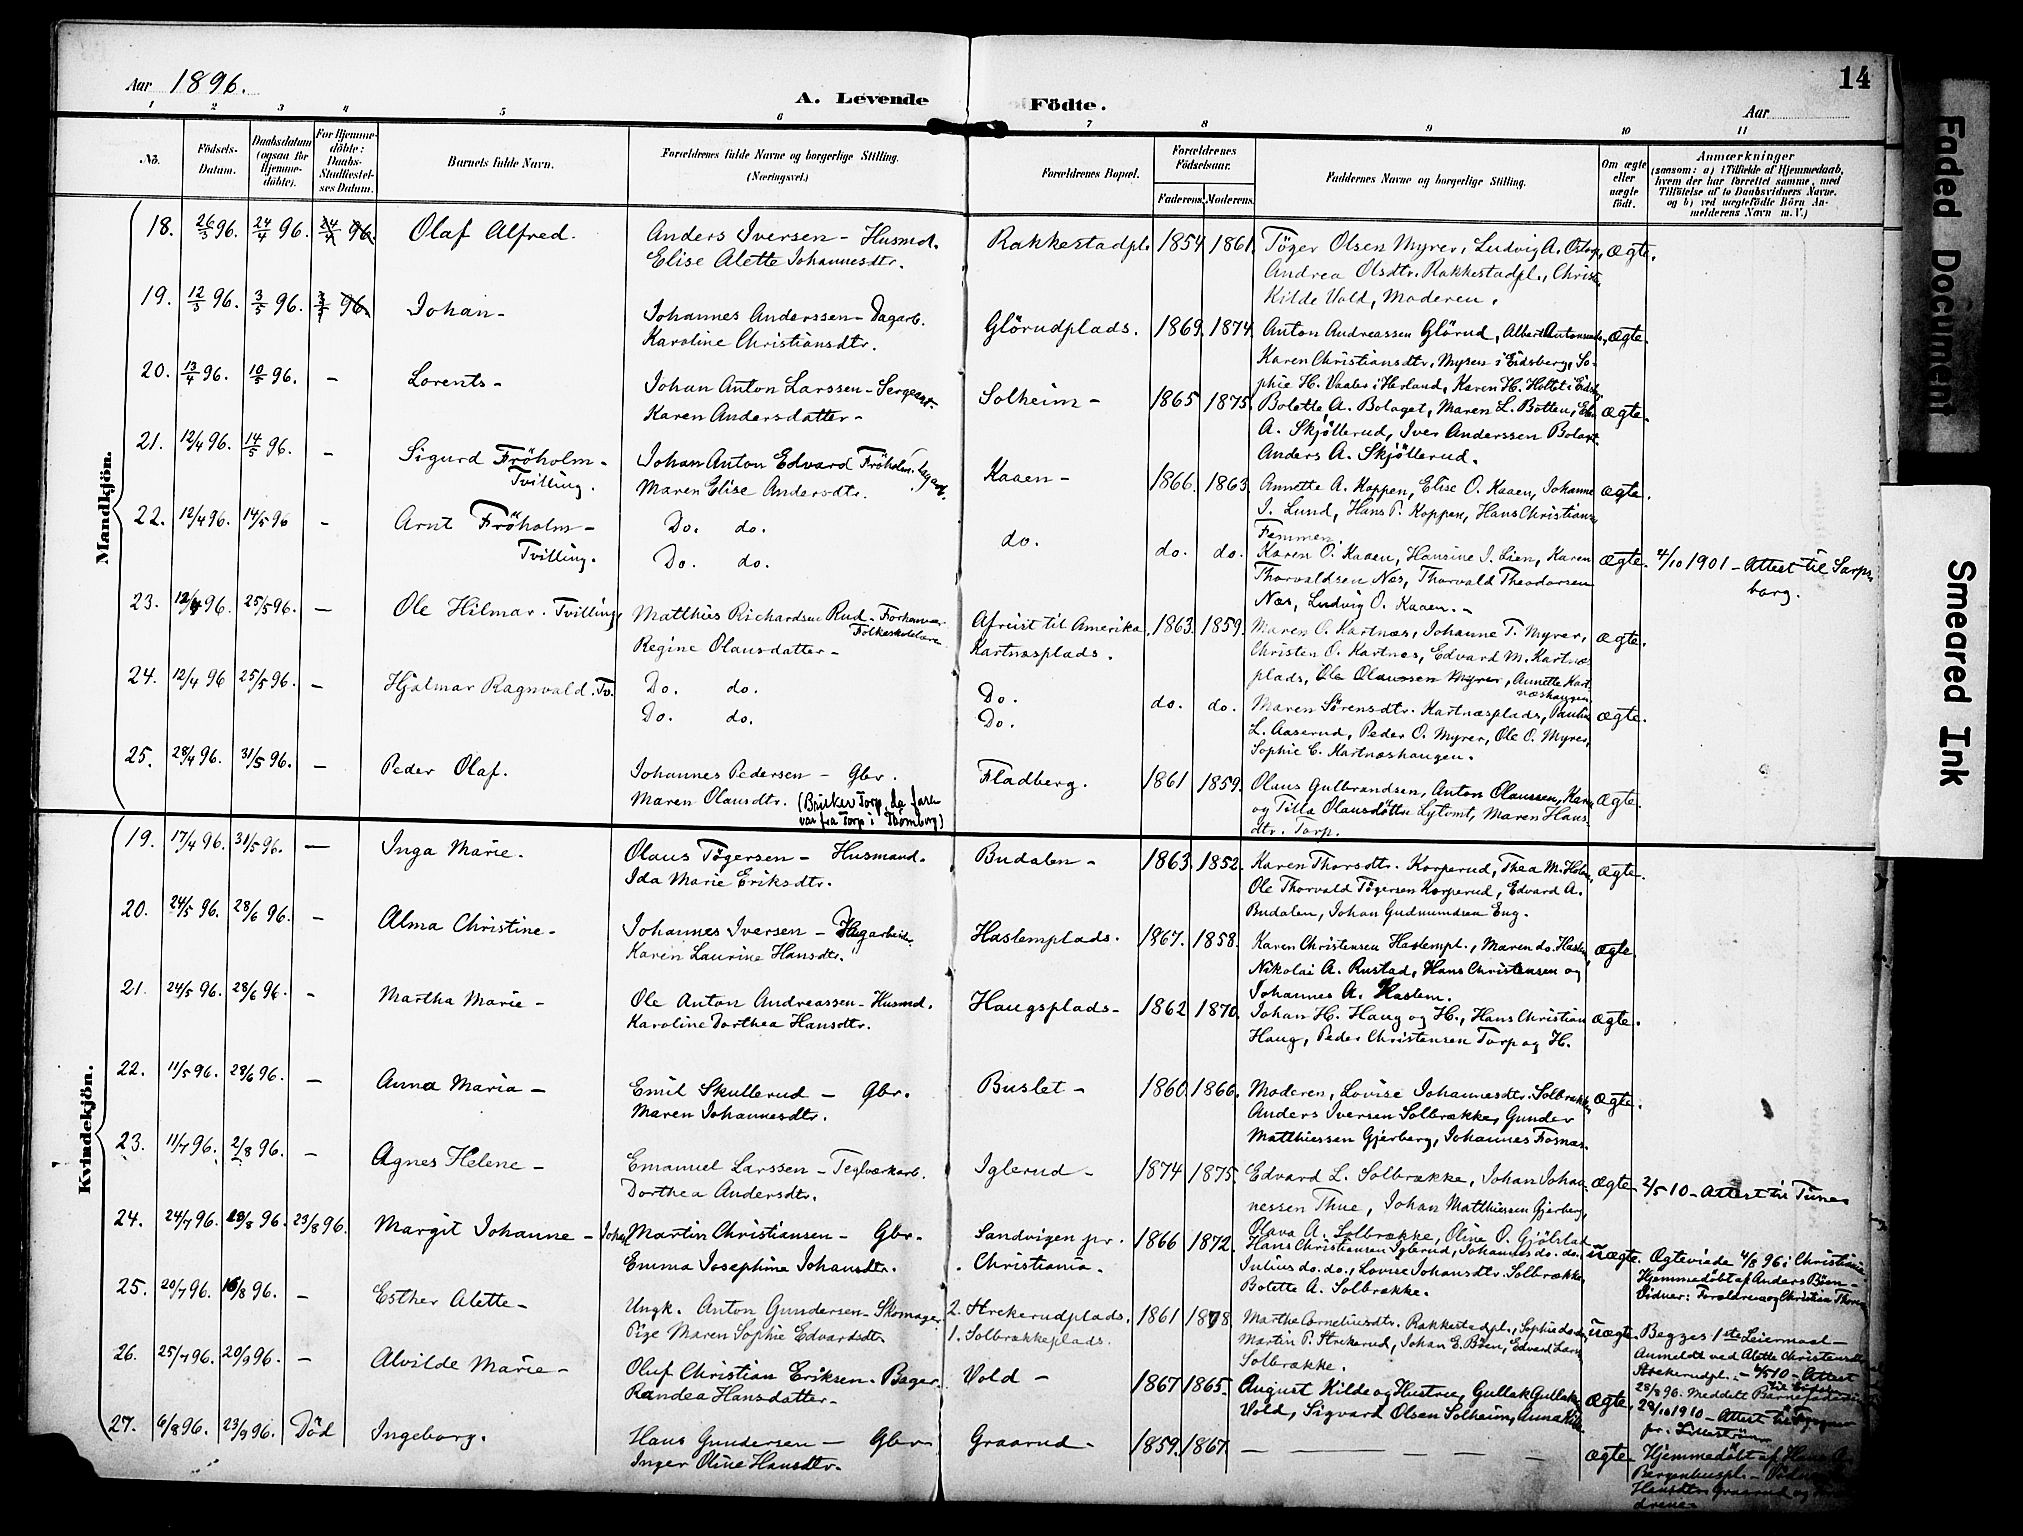 Aar 1896.
A. Levende Födte.
Aar
14
1 2 3 4 5 6 7 8 9 10 11
No. Födsels-Datum. Daabsdatum (ogsaa for Hjemmedöbte). For Hjemmedöbte: Daabs-Stadfæstelses Datum. Barnets fulde Navn. Forældrenes fulde Navne og borgerlige Stilling. (Næringsvei.) Forældrenes Bopæl. Forældrenes Födselsaar. Faderens. Moderens. Faddernes Navne og borgerlige Stilling. Om ægte eller uægte födt. Anmærkninger
(saasom: a) i Tilfælde af Hjemmedaab, hvem der har forrettet samme, med Tilföielse af to Daabsvidners Navne. og b) ved uægtefödte Börn Anmelderens Navn m. V.)
Mandkjön.
18. 26/3 96. 24/4 96. 24/4 96. Olaf Alfred. Anders Iversen - Husmd. Rakkestadpl. 1854 1861. Töger Olsen Myrer, Ludvig A. Ostorp, ægte.
Elise Alette Johannesdtr. Andrea Olsdtr. Rakkestadpl., Christ.
Kilde Vold, Moderen.
19. 12/3 96. 3/5 96. 3/5 96. Johan - Johannes Anderssen - Dagarb. Glörudplads. 1869. 1874. Anton Andreassen Glörud, Albert ægte.
Karoline Christiansdtr. Karen Christiansdtr. Mysen i Eidsberg, So-
phie H. Vaaler i Herland, Karen H. Holtet i Eidsb.
20. 13/4 96. 10/5 96. - Lorents - Johan Anton Larssen - Sergeant. Solheim - 1865 1875. Bolette A. Bolaget, Maren L. Botten, ægte.
Karen Andersdatter - A. Skjöllerud, Iver Anderssen Bolaget.
Anders A. Skjöllerud.
21. 12/4 96. 14/5 96. - Sigurd Fröholm - Tvilling. Johan Anton Edvard Fröholm - Dagarb. Kaaen - 1866. 1863. Annette A. Koppen, Elise O. Kaaen, Johanne ægte.
Maren Elise Andersdtr. I. Lund, Hans P. Koppen, Hans Christians.
Femmen.
22. 12/4 96. 14/5 96 - Arnt Fröholm - Tvilling. Do. do. do. do. do. Karen O. Kaaen, Hansine I. Lien, Karen ægte. 4/10 1901 - Attest til Sarps-
Do. do. Thorvaldsen Næs, Thorvald Theodorsen borg.
Næs, Ludvig O. Kaaen. -
23. 12/4 96. 25/5 96. - Ole Hilmar. Tvilling Matthis Richardsen Rud - Forhenvær. Folkeskolelærer Afreist til Amerika. 1863. 1859. Maren O. Kartnæs, Johanne T. Myrer, ægte.
Regine Olausdatter - Kartnæsplads. Christen O. Kartnæs, Edvard M. Kartnæs-
plads, Ole Olaussen Myrer, Annette Kart-
næshaugen
24. 12/4 96 25/5 96. - Hjalmar Ragnvald. Tv. Do. do. Do. do. do. Maren Sörensdtr. Kartnæsplads, Pauline ægte.
Do. do. Do. L. Aaserud, Peder O. Myrer, Ole O. Myrer,
Sophie C. Kartnæshaugen.
25. 28/4 96. 31/5 96. - Peder Olaf. Johannes Pedersen - Gbr. Fladberg. 1861 1859. Olaus Gulbrandsen, Anton Olaussen, Karen ægte.
Maren Olausdtr. (Bruker Torp, da faren var fra Torp i Tromborg) og Tilla Olausdöttre Lytomt, Maren Hans-
dtr. Torp.
Kvindekjön.
19. 17/4 96. 31/5 96. - Inga Marie. Olaus Tögersen - Husmand. Budalen - 1863. 1852. Karen Thorsdtr. Korperud, Thea M. Holm, ægte.
Ida Marie Eriksdtr. Ole Thorvald Tögersen Korperud, Edvard A.
Budalen, Johan Gudmundsen Eng.
20. 24/5 96. 28/6 96. - Alma Christine - Johannes Iversen - Dagarbeider. Haslemplads. 1867. 1858. Karen Christensen Haslempl., Maren do. Haslem, ægte.
Karen Laurine Hansdtr. Nikolai A. Rustad, Hans Christensen og
Johannes A. Haslem.
21. 24/5 96. 28/6 96. - Martha Marie - Ole Anton Andreassen - Husmd. Haugsplads - 1862 1870. Johan H. Haug og H., Hans Christian ægte.
Karoline Dorthea Hansdtr. Haug, Peder Christensen Torp og H.
22. 11/5 96. 28/6 96. - Anna Maria - Emil Skullerud - Gbr. Buslet - 1860. 1866. Moderen, Lovise Johannesdtr. Solbrække, ægte.
Maren Johannesdtr. Anders Iversen Solbrække, Gunder
Matthiessen Gjerberg, Johannes Fosnæs.
23. 11/7 96. 2/8 96. - Agnes Helene - Emanuel Larssen - Teglværkarb. Iglerud - 1874 1875. Edvard L. Solbrække, Johan Johan- ægte 2/5 10 - Attest til Tunes
Dorthea Andersdtr. nessen Thue, Johan Matthiessen Gjerberg,
Olava A. Solbrække, Oline O. Gjölstad
24. 24/7 96. 23/8 96. 23/8 96. Margit Johanne - Johan Martin Christiansen - Gbr. Sandvigen pr. 1866 1872. Hans Christiansen Iglerud, Johannes do. do. uægte. Ægteviede 4/8 96 i Christiania
Emma Josephine Johansdtr. Christiania. Julius do. do., Lovise Johansdtr. Solbrække Hjemmedöbt af Anders Böen -
Bolette A. Solbrække. Vidner: Forældrene og Christian
25. 20/7 96. 16/8 96. - Esther Alette - Ungk. Anton Gundersen - Skomager 2. Strekerudplads. 1861 1878 Marthe Corneliusdtr. Rakkestadpl., Sophie do. do. uægte. Begges 1ste Leiermaal -
Pige Maren Sophie Edvardsdtr. 1. Solbrækkeplads. Martin P. Strekerud, Johan E. Böen, Edvard Lars. Anmeldt ved Alette Christensdtr.
Solbrække. Strekerudpl. - 4/5 10 - Attest
28/8 96. Meddelt
26. 25/7 96. 20/9 96. - Alvilde Marie - Oluf Christian Eriksen - Bager Vold - 1867 1865. August Kilde og Hustru, Gullak Gullaks. ægte. 28/10 1910 - Attest til
Randea Hansdatter - Vold, Sigvard Olsen Solheim, Anna Kilde pr. Lilleström
27. 6/8 96. 23/9 96. Död Ingeborg. Hans Gundersen - Gbr. Graarud - 1859. 1867. - - - ægte Hjemmedöbt af Hans A.
Inger Oline Hansdtr. Bergenhuspl. -
Hansdtr. Graarud og For-
ældrene
Faded Document
Smeared Ink